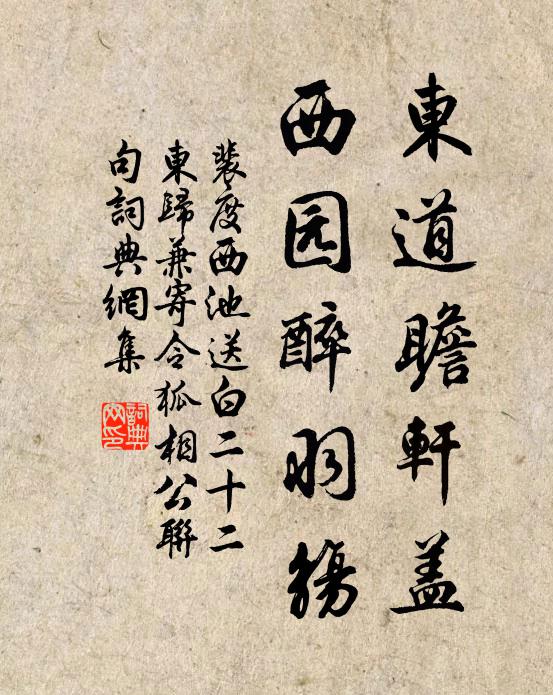 東道瞻軒盖
西园醉羽觞
裴度西池送白二十二
東歸兼寄令狐相公聯
句詞典網集
詞典网印